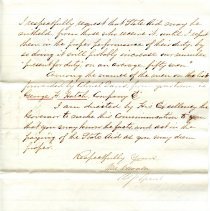 I respectfully request that State Aid may be
withheld from those who receive it, until I report
them in the proper performance of their duty, by
so doing it will probably increase our number
present for duty, on an average fifty men
Among the names of the men on the list
George F. Hatch Company E.
I am directed by His Excellency the
Governor to make this Communication to you
that you may know the facts and act in the
paying of the State Aid as you may deem
proper.
Respectfully Yours